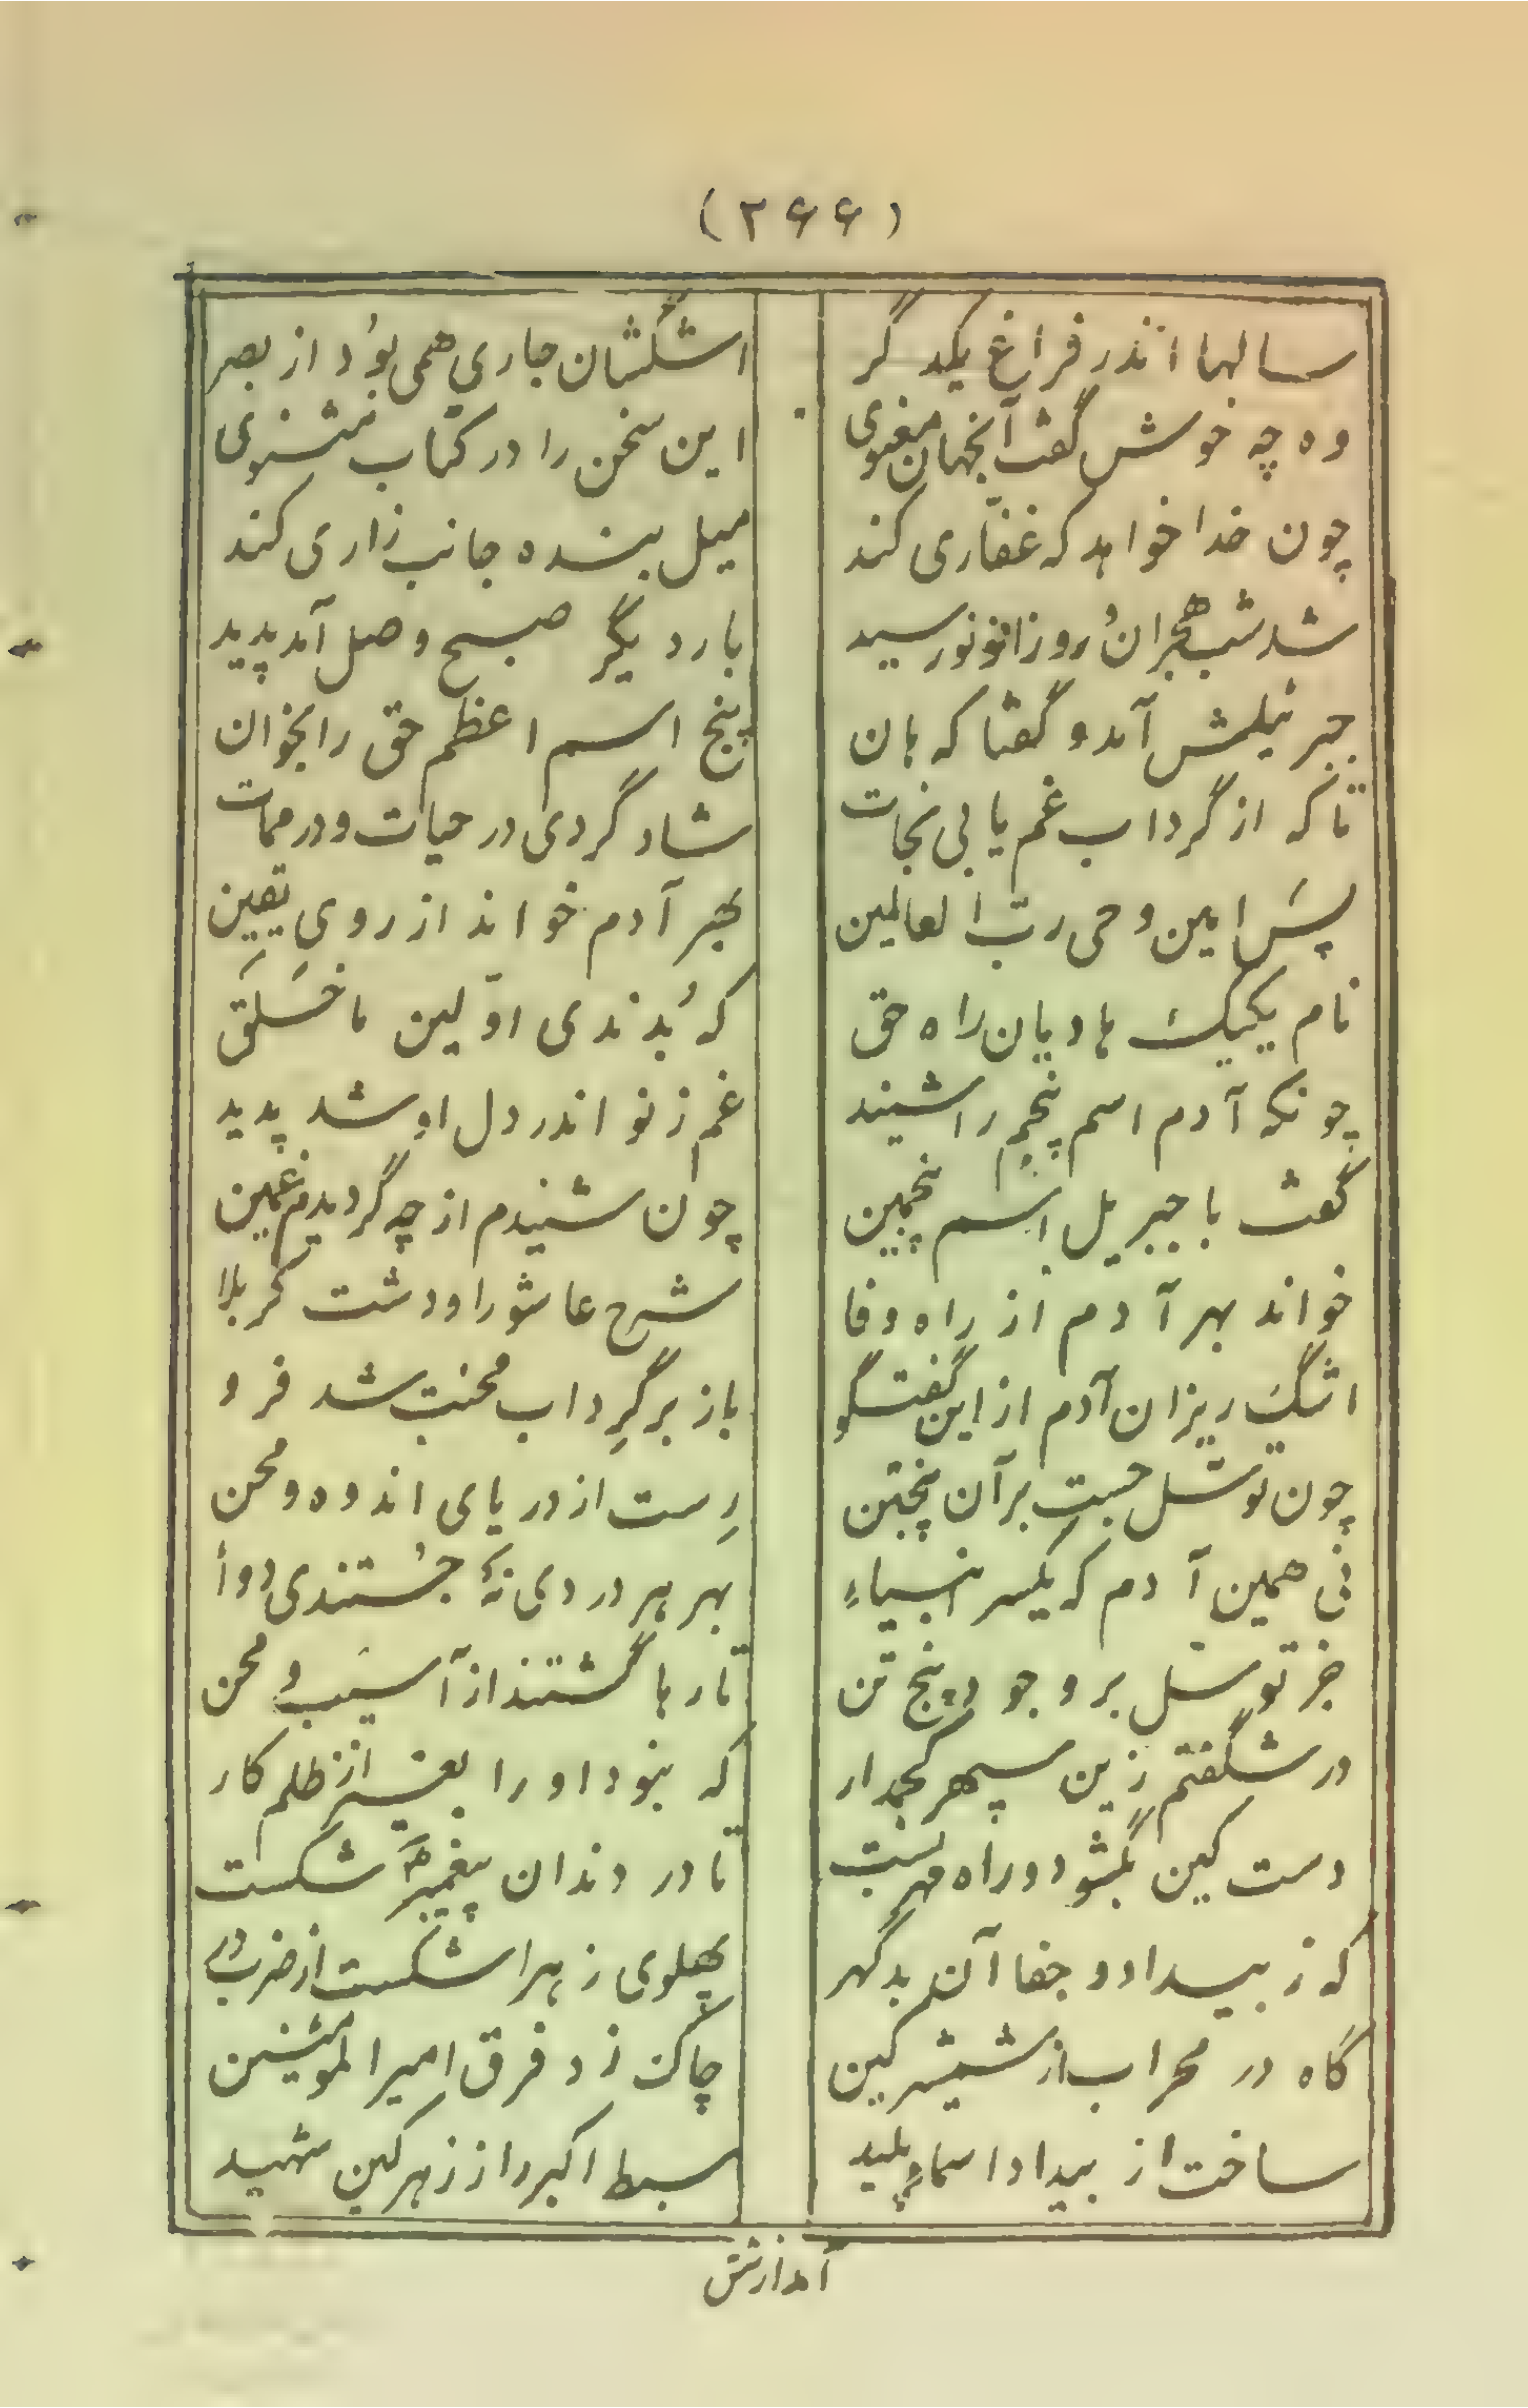 (۲۶۶)
سالها اندر فراغ یکدگر اشکشان جاری همی بُود از بصر
وه چه خوش گفت آنجهان معنوی این سخن را در کتاب مثنوی
چون خدا خواهد که غفّاری کند میل بنده جانب زاری کند
شد شب هجران وُ روز نو رسید بار دیگر صبح وصل آمد پدید
جبرئیلش آمد و گفتا که هان پنج اسم اعظم حق را بخوان
تا که از گرداب غم یابی نجات شاد گردی در حیات و در ممات
پسَ امین وحی ربّ العالمین بهر آدم خواند از رویِ یقین
نام یکیک هادیان راه حق که بُدندی اوّلین ما خَلَق
چونکه آدم اسم پنجم را شنید غم ز نو اندر دل او شد پدید
گفت با جبریل اسم پنجمین چون شنیدم از چه گردیدم غمین
خواند بهر آدم از راه وفا شرح عاشورا و دشت کربلا
اشگ ریزان آدم از این گفتگو باز بر گرِداب محنت شد فرو
چون توسّل جست بر آن پنجتن رِست از دریای اندوه و محن
نی همین آدم که یکسر انبیاءِ بهر هر دردی نه جُستندی دوأ
جز توسل بر وجود پنج تن تا رها گشتند از آسیب و محن
در شگفتم زین سپهر کجمدار که نبود او را بغیر از ظلم کار
دست کین بگشود و راه مهر بست تا در دندان پیغمبر شکست
که ز بیداد و جفا آن بد گهر پهلوی زهرا شکست از ضرب در
گاه در محراب از شمشیر کین چاک زد فرق امیرالمومنین
ساخت از بیداد اسماءِ پلید سبط اکبر را ز زهر کین شهید